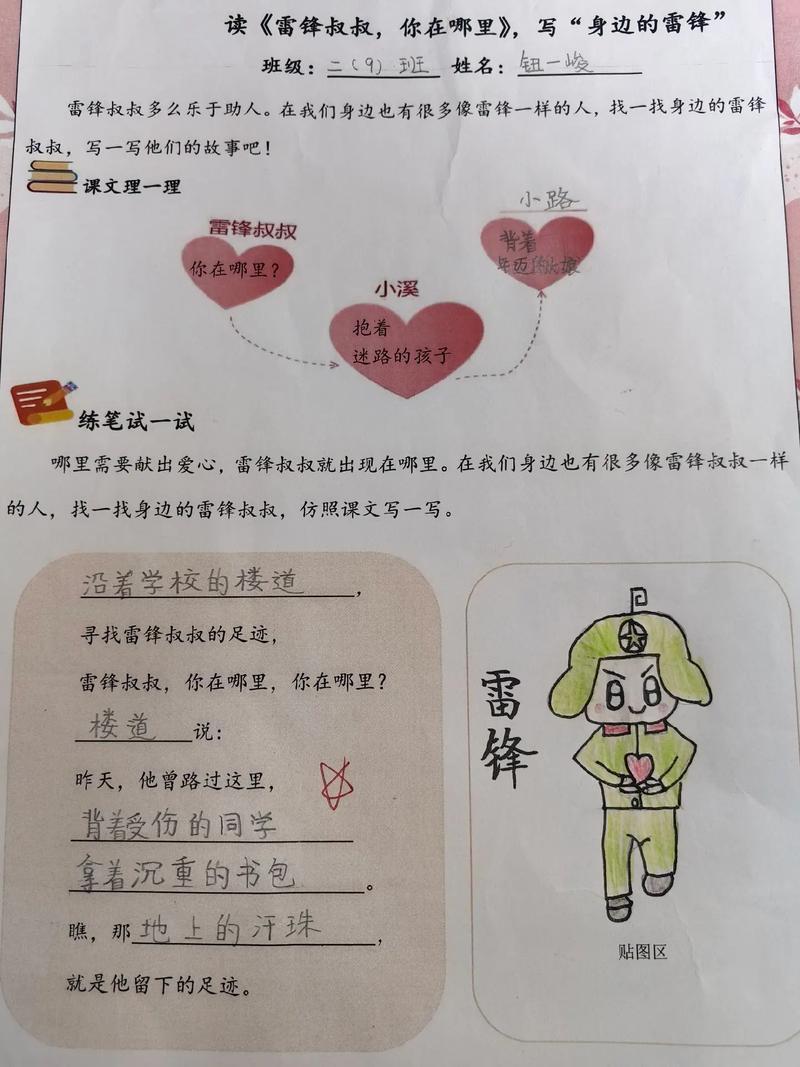 读《雷锋叔叔，你在哪里》，写“身边的雷锋”
班级：二（9）班 姓名：钮一峻
雷锋叔叔多么乐于助人。在我们身边也有很多像雷锋一样的人，找一找身边的雷锋
叔叔，写一写他们的故事吧！
课文理一理
小路
雷锋叔叔
背着
年迈的大娘
你在哪里？
小溪
抱着
迷路的孩子
练笔试一试
哪里需要献出爱心，雷锋叔叔就出现在哪里。在我们身边也有很多像雷锋叔叔一样
的人，找一找身边的雷锋叔叔，仿照课文写一写。
沿着学校的楼道，
寻找雷锋叔叔的足迹，
雷锋叔叔，你在哪里，你在哪里？
楼道说：
昨天，他曾路过这里，
背着受伤的同学
拿着沉重的书包。
瞧，那地上的汗珠，
就是他留下的足迹。
雷锋
贴图区